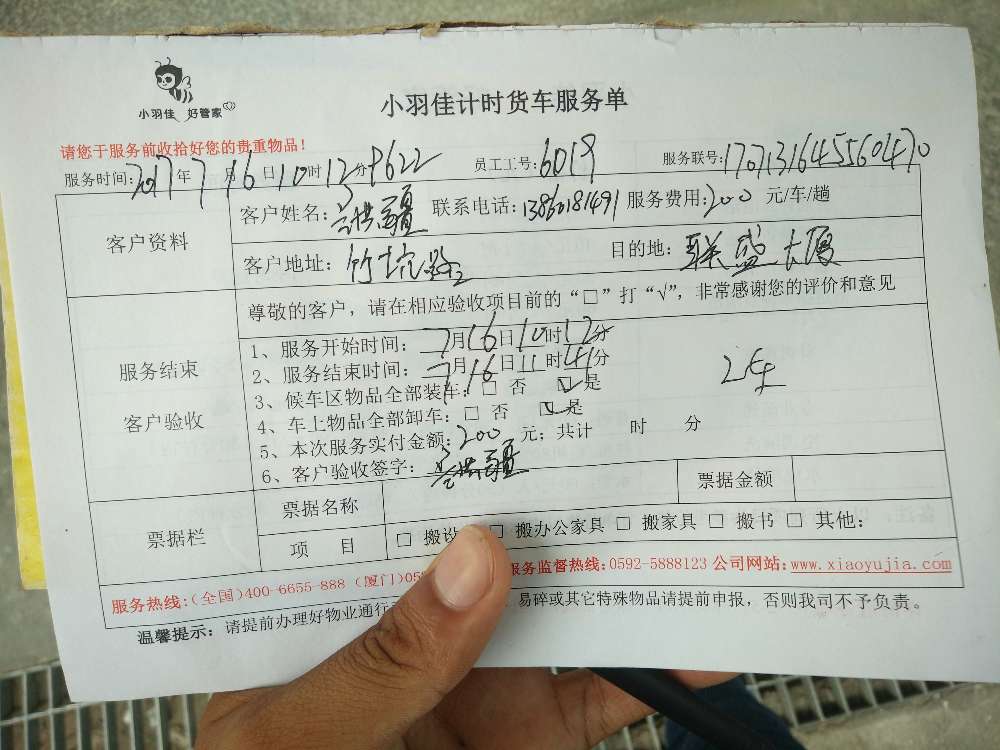 小羽佳 好管家
小羽佳计时货车服务单
请您于服务前收拾好您的贵重物品！
服务时间：2017年7月16日10时12分 8622 员工工号：6019 服务联号：17071316455560470
客户资料
客户姓名： 联系电话：13860181491 服务费用：200 元/车/趟
客户地址：竹坑路2 目的地：联盛大厦
服务结束
客户验收
尊敬的客户，请在相应验收项目前的“□”打“√”，非常感谢您的评价和意见
1、服务开始时间：7月16日10时12分
2、服务结束时间：7月16日11时41分
3、候车区物品全部装车：□ 否 ☑是
4、车上物品全部卸车：□ 否 ☑是
5、本次服务实付金额：200 元；共计 时 分
6、客户验收签字：
票据栏
票据名称 票据金额
项 目 □ 搬设 □ 搬办公家具 □ 搬家具 □ 搬书 □ 其他：
服务热线：（全国）400-6655-888（厦门）05 服务监督热线：0592-5888123 公司网站：www.xiaoyujia.com
温馨提示：请提前办理好物业通行 易碎或其它特殊物品请提前申报，否则我司不予负责。